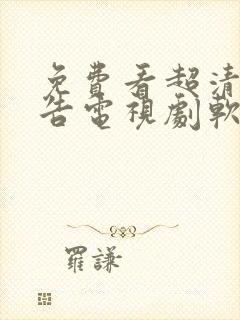 免費看超清
告電視劇軟
羅謙